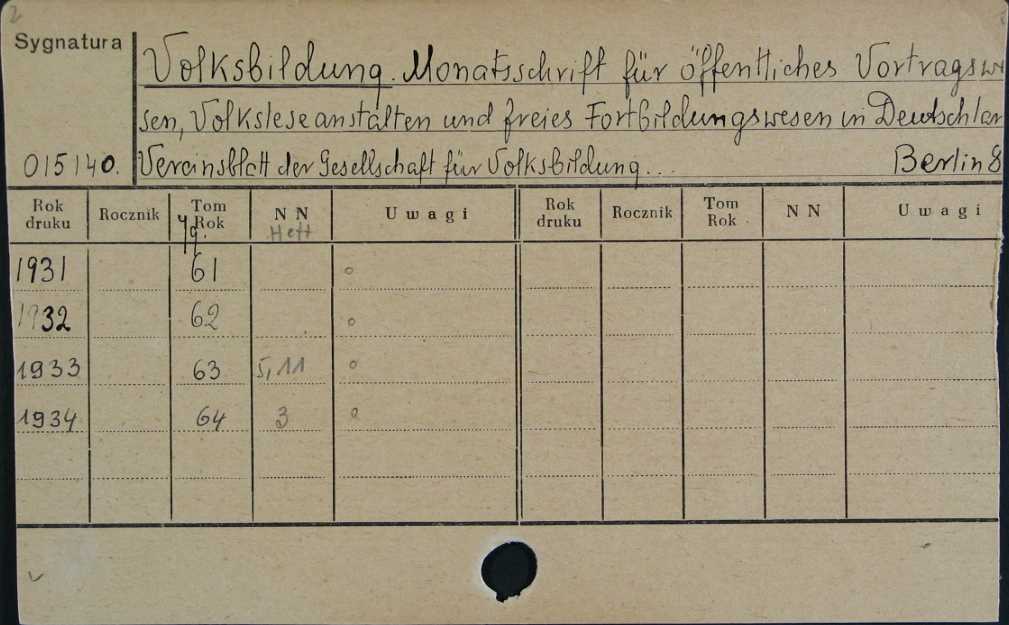 2
Sygnatura
Volksbildung. Monatsschrift für öffentliches Vortragswe
sen, Volksleseanstalten und freies Fortbildungswesen in Deutschlan
015140. Vereinsblatt der Gesellschaft für Volksbildung... Berlin 8
Rok druku Rocznik Tom Rok N N Uwagi Rok druku Rocznik Tom Rok N N Uwagi
Jg. Heft
1931 61 o
1932 62 o
1933 63 5, 11 o
1934 64 3 o